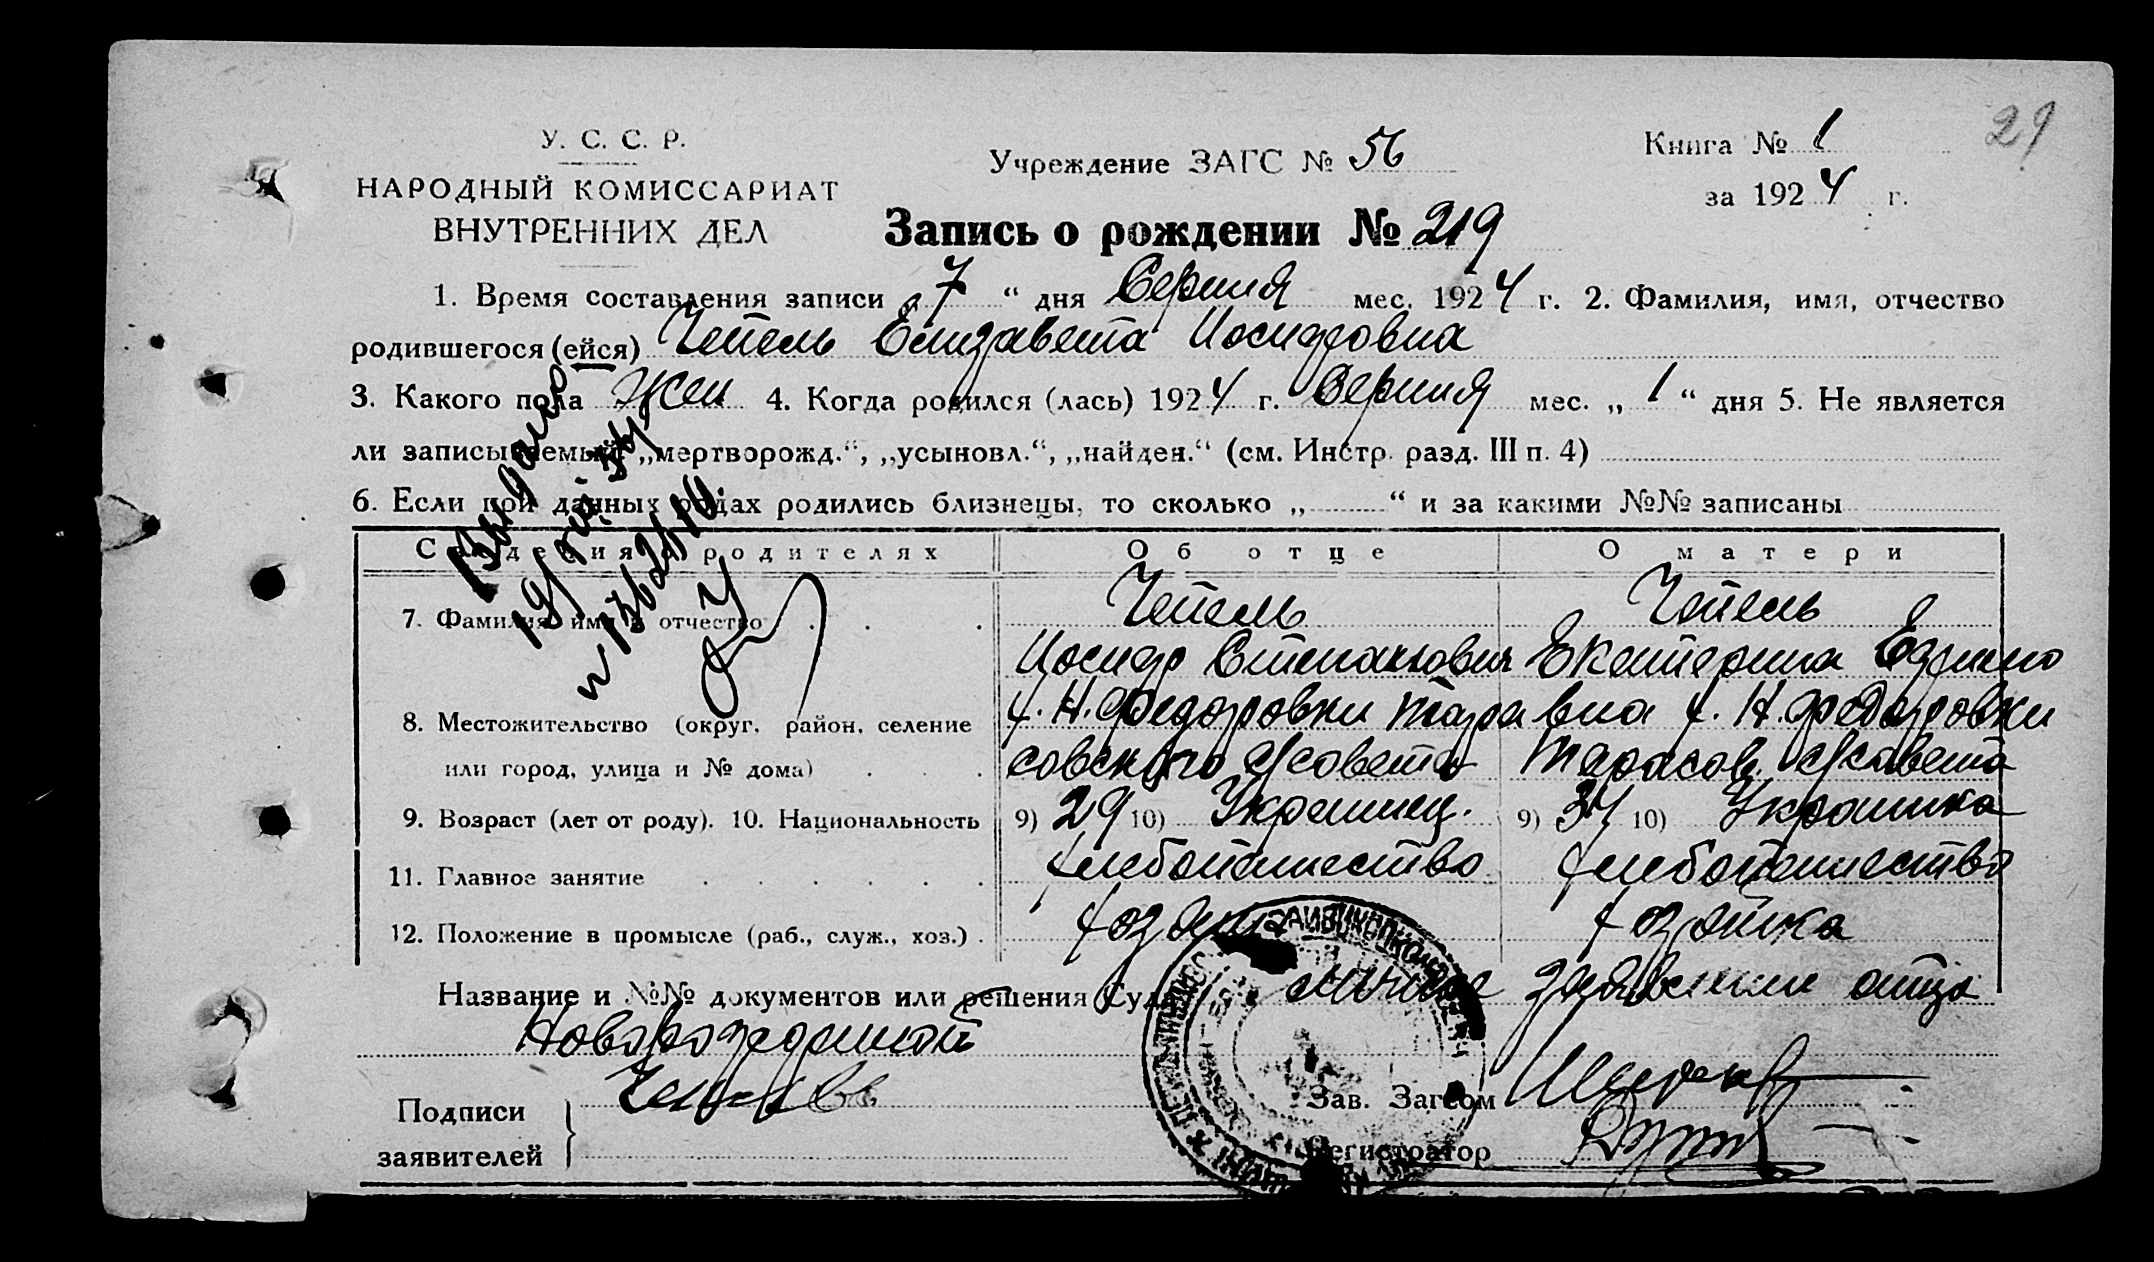 29
У. С. С. Р.
НАРОДНЫЙ КОМИССАРИАТ
ВНУТРЕННИХ ДЕЛ
Учреждение ЗАГС № 56
Книга № 1
за 1924 г.
Запись о рождении № 219
1. Время составления записи „ 7 “ дня Серпня мес. 1924 г. 2. Фамилия, имя, отчество
родившегося (ейся) Чепель Елизавета Иосифовна
3. Какого пола жен 4. Когда родился (лась) 1924 г. Серпня мес. „ 1 “ дня 5. Не является
ли записываемый „мертворожд.“, „усыновл.“, „найден.“ (см. Инстр. разд. III п. 4)
6. Если при данных родах родились близнецы, то сколько „ “ и за какими №№ записаны
Сведения о родителях Об отце О матери
7. Фамилия, имя и отчество Чепель Чепель
Иосиф Степанович Екатерина Ефимо
х. Н. Федоровки Тара вна х. Н. Федоровки
8. Местожительство (округ, район, селение
или город, улица и № дома) совского с/совета Тарасов. с/совета
9. Возраст (лет от роду). 10. Национальность 9) 29 10) Украинец. 9) 34 10) Украинка
11. Главное занятие хлебопашество хлебопашество
12. Положение в промысле (раб., служ., хоз.) хозяин хозяйка
Название и №№ документов или решения Суда личное заявление отца
Новорожденной
Подписи
заявителей
Зав. Загсом
Регистратор
Выдано